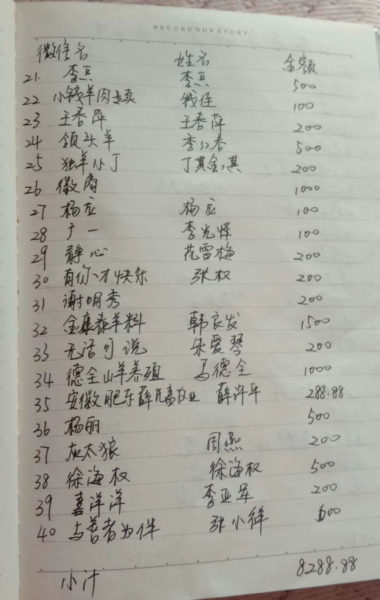 RECORD OUR STORY
微信名 姓名 金额
21. 李兵 李兵 500
22 小钱羊肉专卖 钱佳 100
23 王春萍 王春萍 200
24 领头羊 李 春 500
25 独羊小丁 丁其 其 200
26 徽商 1000
27 杨宏 杨宏 100
28 广一 李光辉 100
29 静心 范雪梅 200
30 有你才快乐 张权 200
31 谢明秀 200
32 金康泰羊料 韩良发 1500
33 无话可说 朱爱琴 200
34 德全山羊养殖 马德全 1000
35 安徽肥东薛 畜牧业 薛 年 288.88
36 杨丽 500
37 灰太狼 周 200
38 徐海权 徐海权 500
39 喜洋洋 李亚军 200
40 与善者为伴 张小祥 600
小计 8288.88